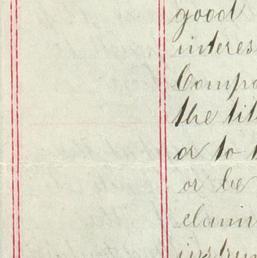 good
interes
Compa
the tit
or to t
or be
claim
instrum